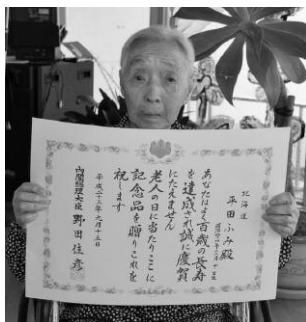 北海道
平田ふみ殿
あなたはよく百歳の長寿
を達成され誠に慶賀
にたえません
老人の日に当たりここに
記念品を贈りこれを
祝します
平成二十三年九月十五日
内閣総理大臣 野田佳彦